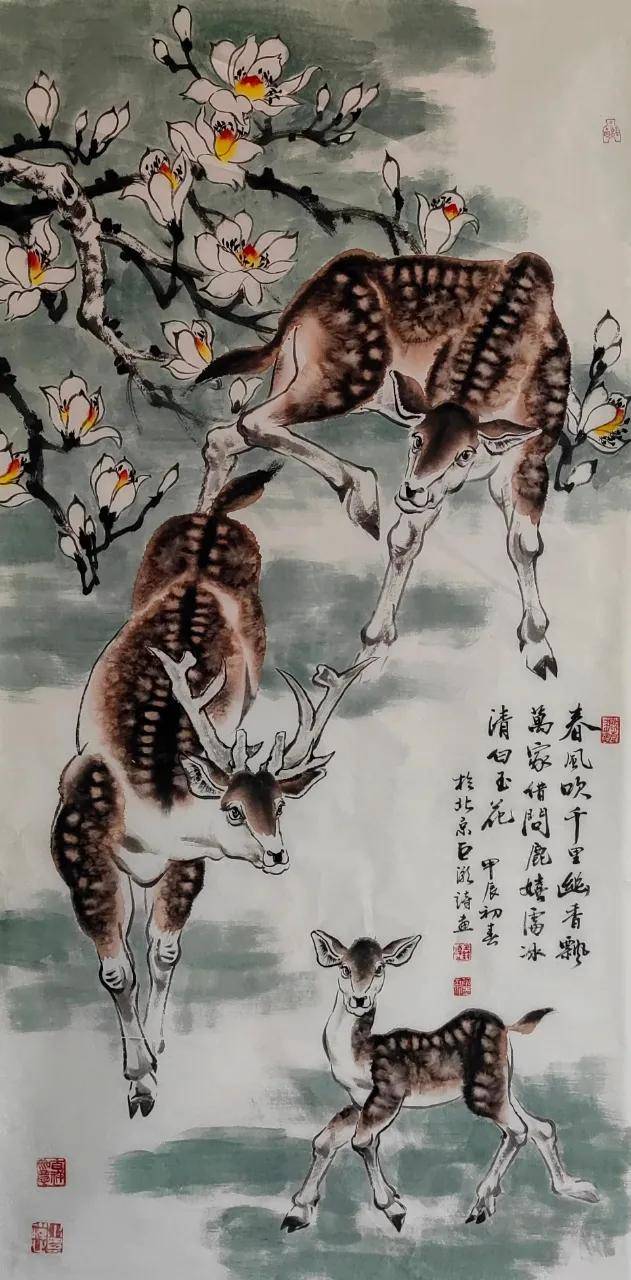 春風吹千里幽香飄
萬家借問鹿嬉冰
清白玉花 甲辰初春
於北京巨詩画